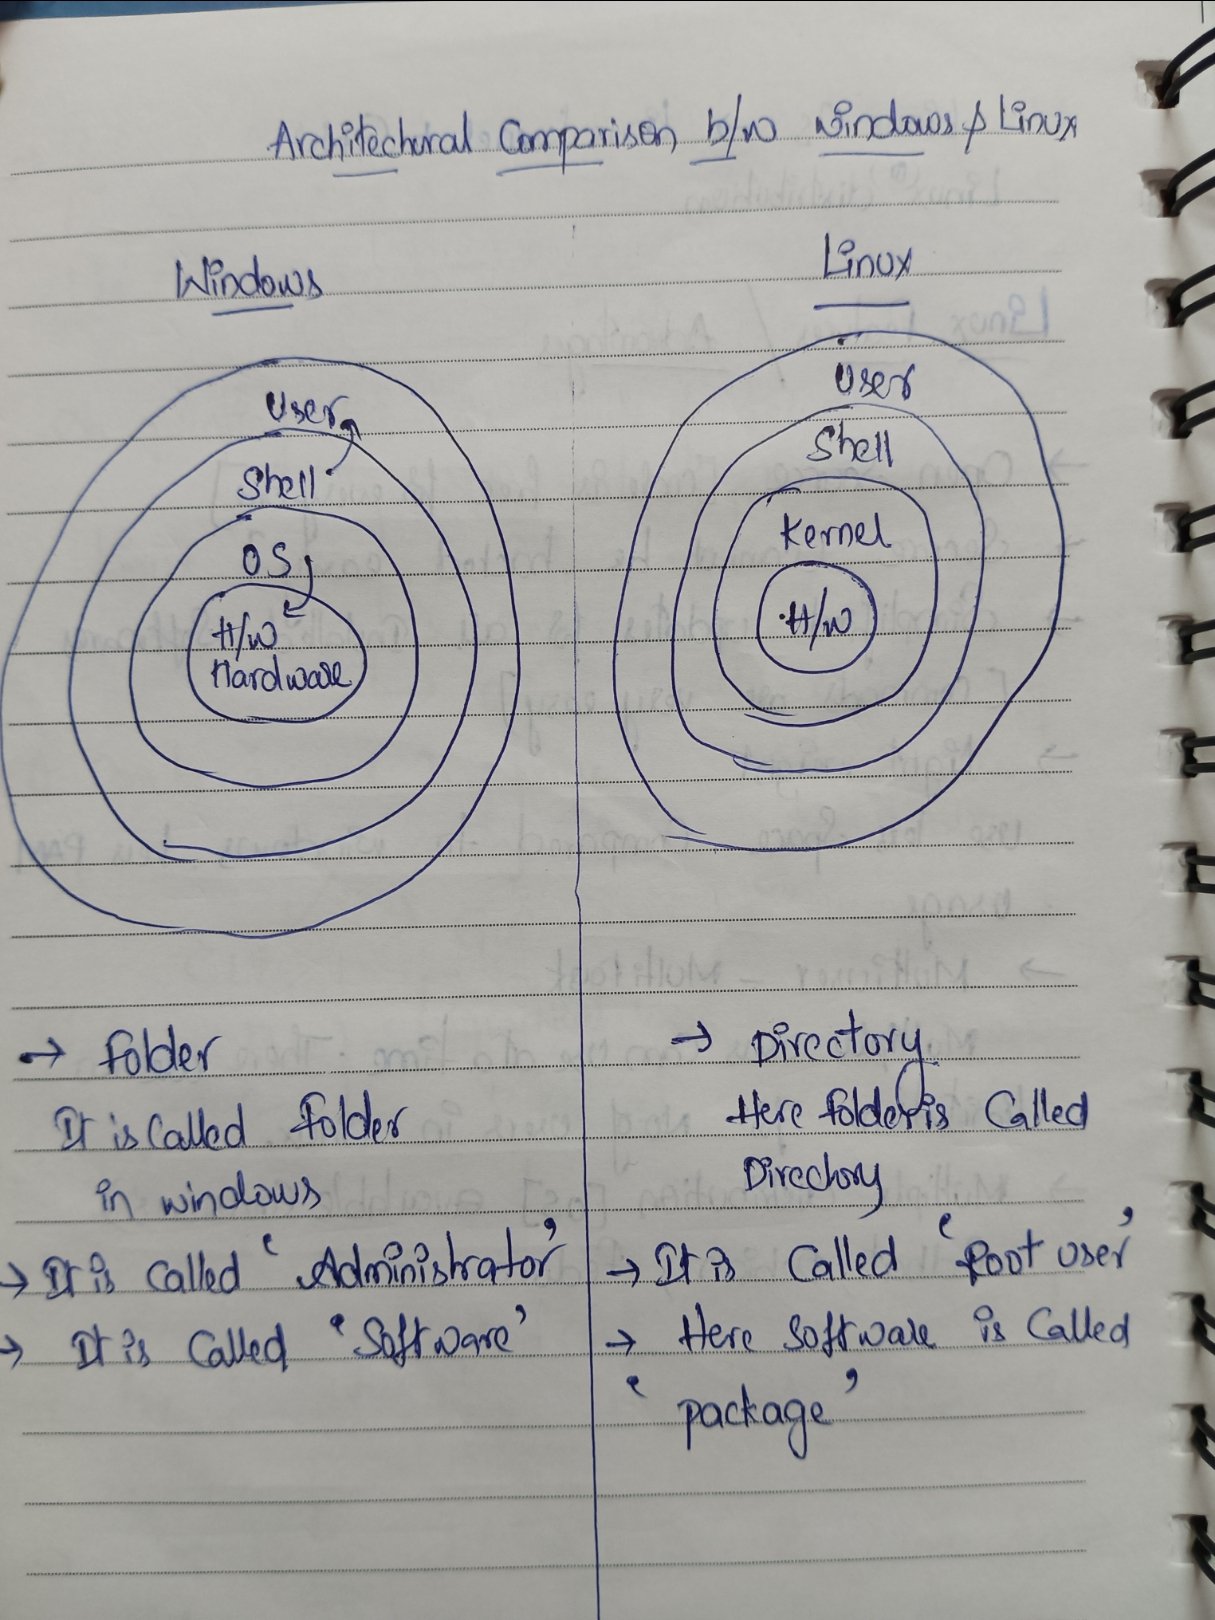 Architechural Comparison b/w windows & Linux
Windows
User
Shell
OS
H/w
Hardware
→ Folder
It is Called Folder
in windows
→ It is Called ‘Administrator’
→ It is Called ‘Software’
Linux
User
Shell
Kernel
H/w
→ Directory
Here folder is Called
Directory
→ It is Called ‘Root user’
→ Here Software is Called
‘package’